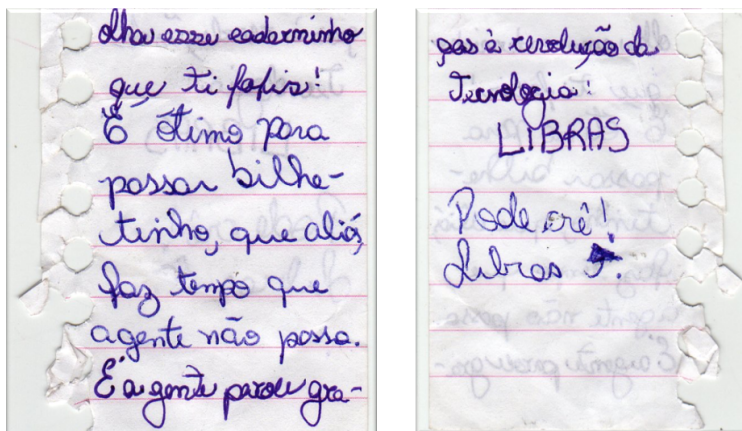 olha esse caderninho
que ti fofis!
É ótimo para
passar bilhe-
tinho, que aliás,
faz tempo que
agente não passa.
E a gente parou gra-
ças à revolução da
Tecnologia:
LIBRAS
Pode crê!
Libras